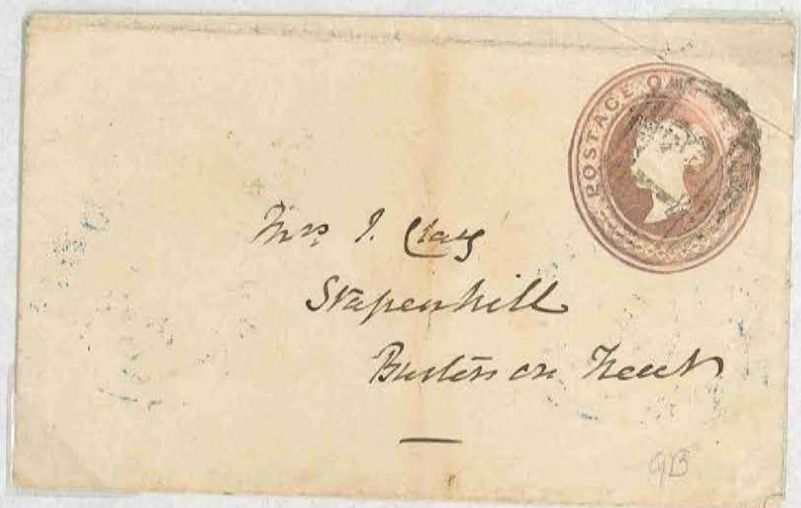 POSTAGE ONE PE
Mrs J. Clay
Stapenhill
Burton on Trent
GB